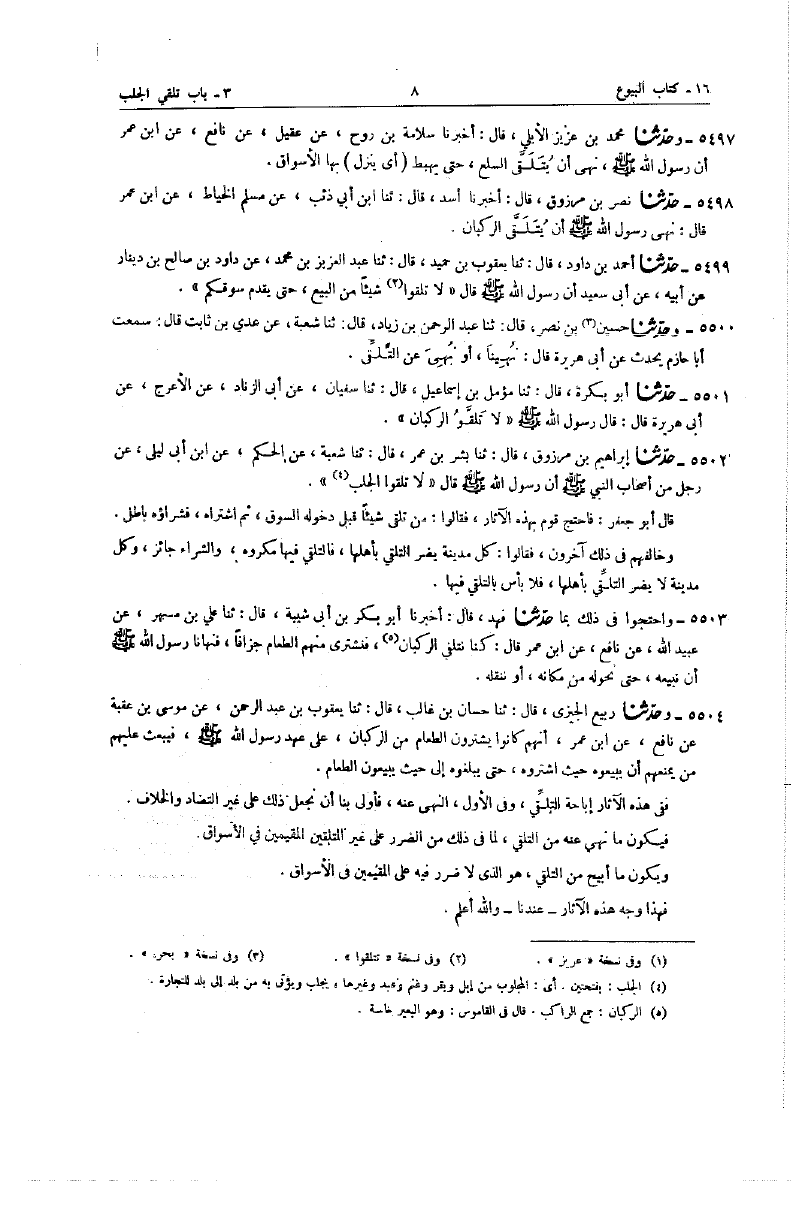 ١٦ - كتاب البيوع ٨ ٣ - باب تلقي الجلب
٥٤٩٧ - وحدثنا محمد بن عزيز الأيلي ، قال : أخبرنا سلامة بن روح ، عن عقيل ، عن نافع ، عن ابن عمر
أن رسول الله ﷺ ، نهى أن يُتَلَقَّى السلع ، حتى يهبط ( أى ينزل ) بها الأسواق .
٥٤٩٨ - حدثنا نصر بن مرزوق ، قال : أخبرنا أسد ، قال : ثنا ابن أبي ذئب ، عن مسلم الخياط ، عن ابن عمر
قال : نهى رسول الله ﷺ أن يُتَلَقَّى الركبان .
٥٤٩٩ - حدثنا أحمد بن داود ، قال : ثنا يعقوب بن حميد ، قال : ثنا عبد العزيز بن محمد ، عن داود بن صالح بن دينار
عن أبيه ، عن أبى سعيد أن رسول الله ﷺ قال « لا تلقوا(٢) شيئاً من البيع ، حتى يقدم سوقكم » .
٥٥٠٠ - وحدثنا حسين(٣) بن نصر ، قال : ثنا عبد الرحمن بن زياد ، قال : ثنا شعبة ، عن عدي بن ثابت قال : سمعت
أبا حازم يحدث عن أبى هريرة قال : نُهِينَا ، أو نُهِىَ عن التَّلَقِّى .
٥٥٠١ - حدثنا أبو بكرة ، قال : ثنا مؤمل بن إسماعيل ، قال : ثنا سفيان ، عن أبى الزناد ، عن الأعرج ، عن
أبى هريرة قال : قال رسول الله ﷺ « لا تَلَقَّوُا الركبان » .
٥٥٠٢ - حدثنا إبراهيم بن مرزوق ، قال : ثنا بشر بن عمر ، قال : ثنا شعبة ، عن الحكم ، عن ابن أبى ليلى ، عن
رجل من أصحاب النبي ﷺ أن رسول الله ﷺ قال « لا تلقوا الجلب(٤) » .
قال أبو جعفر : فاحتج قوم بهذه الآثار ، فقالوا : من تلقى شيئاً قبل دخوله السوق ، ثم اشتراه ، فشراؤه باطل .
وخالفهم فى ذلك آخرون ، فقالوا : كل مدينة يضر التلقي بأهلها ، فالتلقي فيها مكروه ، والشراء جائز ، وكل
مدينة لا يضر التلقِّي بأهلها ، فلا بأس بالتلقي فيها .
٥٥٠٣ - واحتجوا فى ذلك بما حدثنا فهد ، قال : أخبرنا أبو بكر بن أبى شيبة ، قال : ثنا علي بن مسهر ، عن
عبيد الله ، عن نافع ، عن ابن عمر قال : كنا نتلقي الركبان(٥) ، فنشترى منهم الطعام جزافاً ، فنهانا رسول الله ﷺ
أن نبيعه ، حتى نحوله من مكانه ، أو ننقله .
٥٥٠٤ - وحدثنا ربيع الجيزى ، قال : ثنا حسان بن غالب ، قال : ثنا يعقوب بن عبد الرحمن ، عن موسى بن عقبة
عن نافع ، عن ابن عمر ، أنهم كانوا يشترون الطعام من الركبان ، على عهد رسول الله ﷺ ، فيبعث عليهم
من يمنعهم أن يبيعوه حيث اشتروه ، حتى يبلغوه إلى حيث يبيعون الطعام .
ففى هذه الآثار إباحة التلقِّي ، وفى الأول ، النهى عنه ، فأولى بنا أن نجعل ذلك على غير التضاد والخلاف .
فيكون ما نهي عنه من التلقي ، لما فى ذلك من الضرر على غير المتلقين المقيمين في الأسواق .
ويكون ما أبيح من التلقي ، هو الذى لا ضرر فيه على المقيمين فى الأسواق .
فهذا وجه هذه الآثار – عندنا – والله أعلم .
(١) وفى نسخة « عرير » . (٢) وفى نسخة « تتلقوا » . (٣) وفى نسخة « بحر » .
(٤) الجلب : بفتحتين . أى : المجلوب من إبل وبقر وغنم وعبد وغيرها ، يجلب ويؤتى به من بلد إلى بلد للتجارة .
(٥) الركبان : جمع الراكب . قال فى القاموس : وهو البعير خاصة .